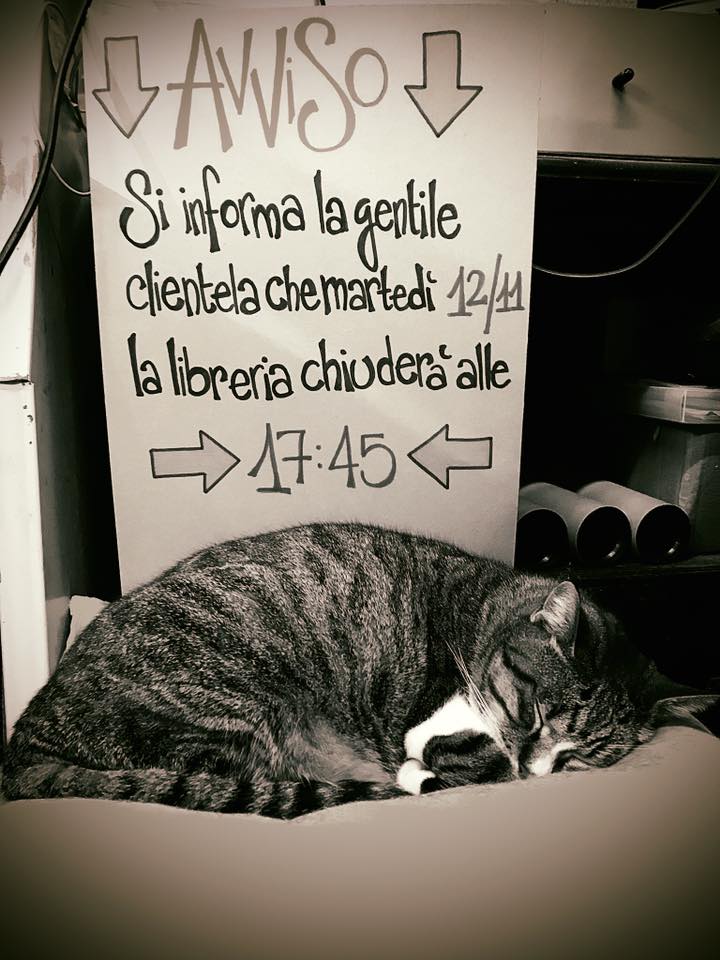 AVViSo
Si informa la gentile
clientela che martedì 12/11
la libreria chiuderà alle
17:45